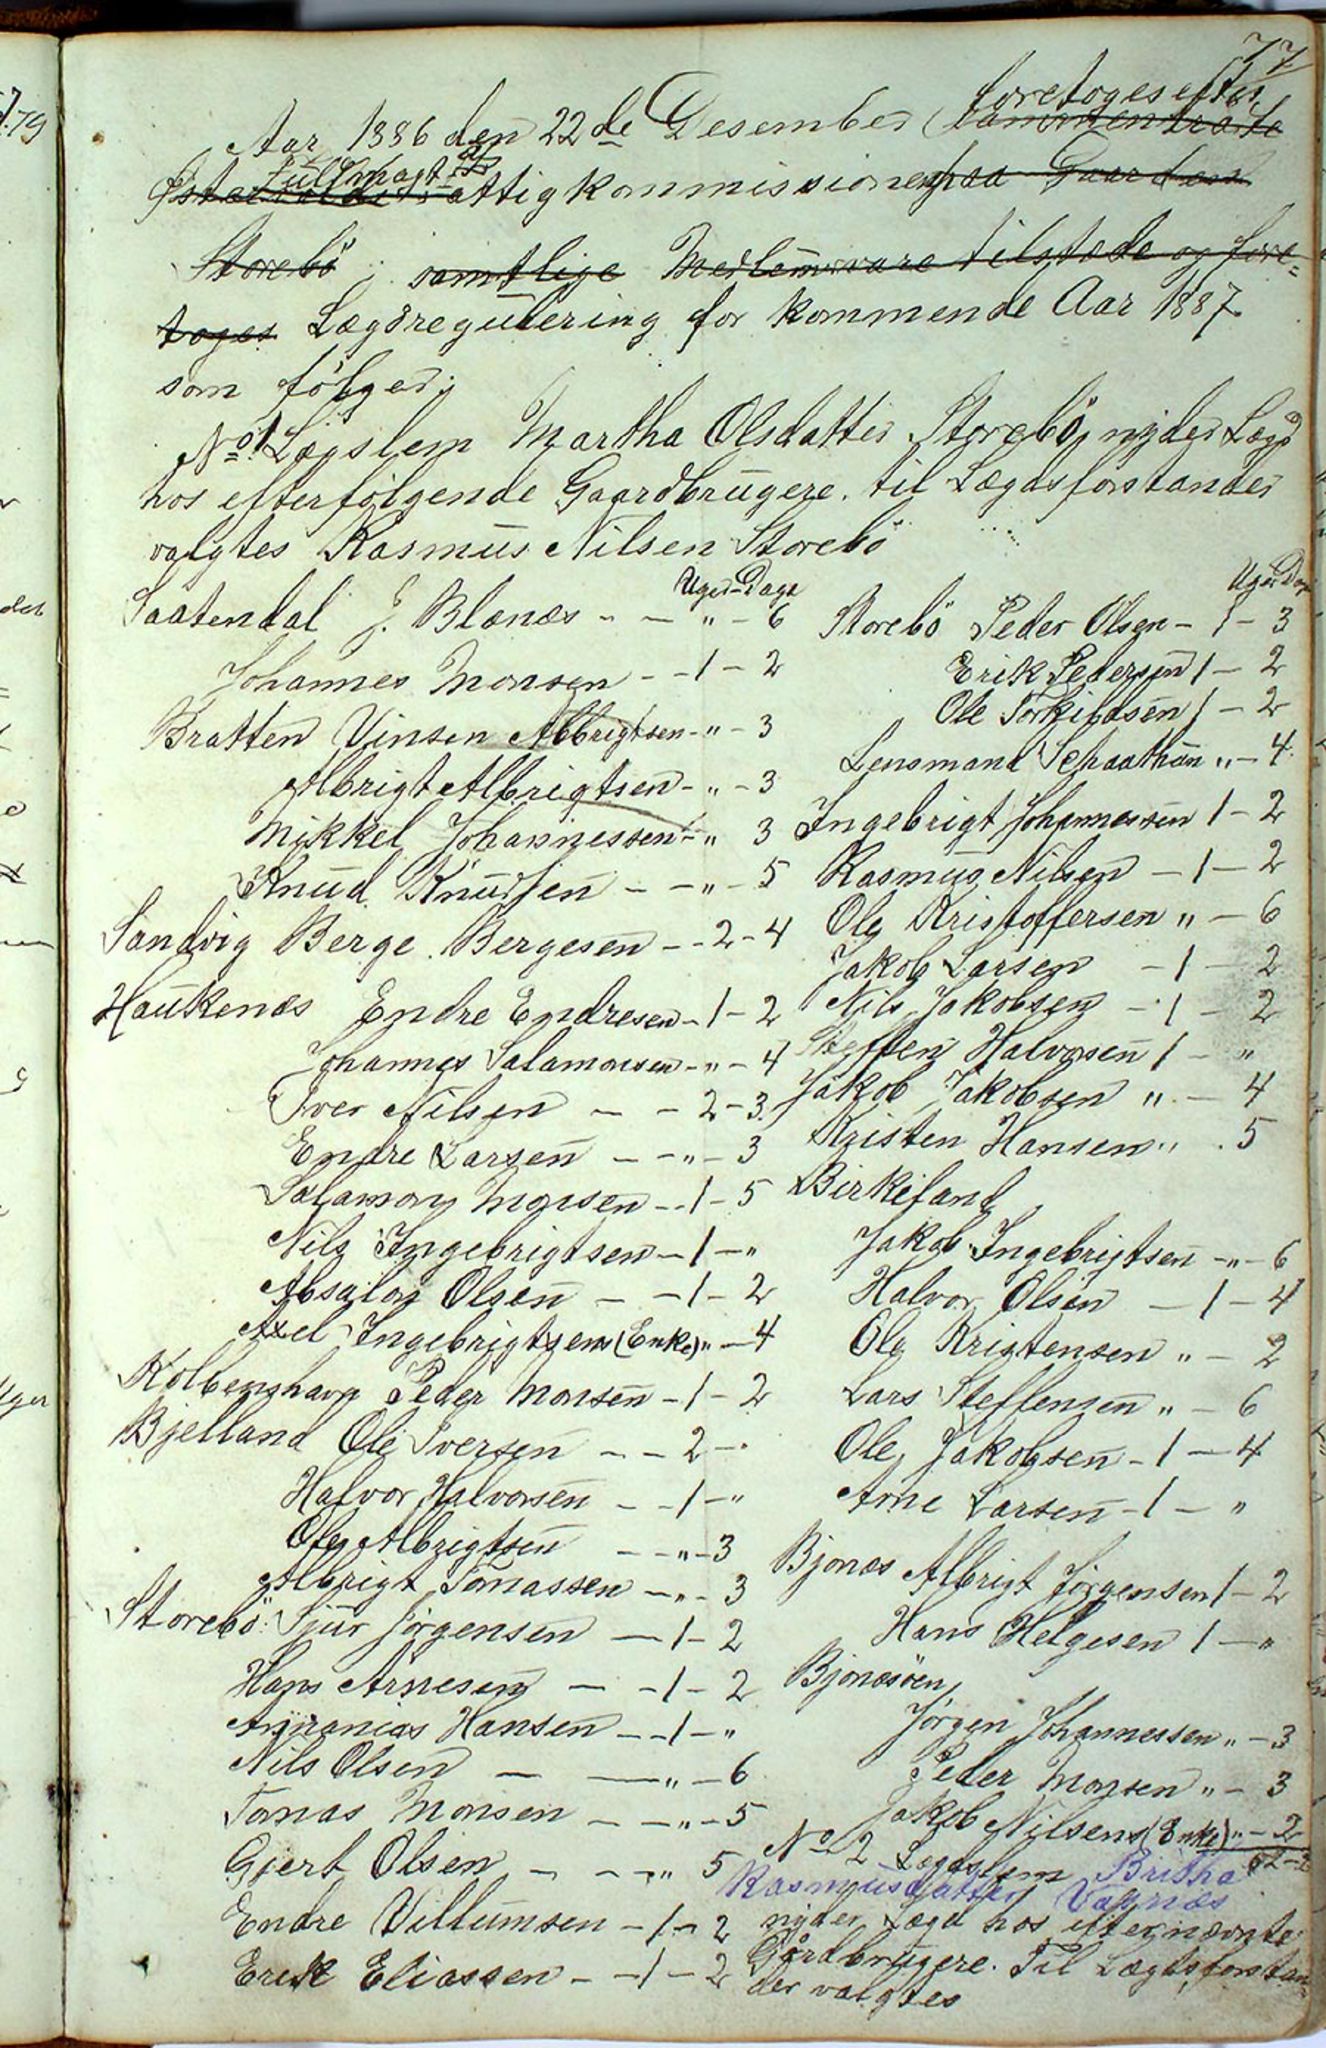 77
foretoges efter
Aar 1886 den 22de Desember sammentraadte
Fullmagt af
Østervolds Fattigkommissionen paa Gaarden
Storebö; samtlige Medlemmer vare tilstede og fore-
toges Lægdregulering for kommende Aar 1887
som fölger:
No 1 Lægslem Martha Olsdatter Storebö, nyder Lægd
hos efterfölgende Gaardbrugere. til Lægdsforstander
valgtes Rasmus Nilsen Storebö
Uger - Dage
Saatendal J. Blænæs - - " - 6
Johannes Monsen - - 1 - 2
Bratten Vinsen Albrigtsen - " - 3
Albrigt Albrigtsen - " - 3
Mikkel Johannessen - " 3
Knud Knudsen - - " - 5
Sandvig Berge Bergesen - - 2 - 4
Haukenæs Endre Endresen - 1 - 2
Johannes Salamonsen - " - 4
Iver Nilsen - - 2 - 3
Endre Larsen - - " - 3
Salamon Monsen - - 1 - 5
Nils Ingebrigtsen - 1 - "
Absalon Olsen - - 1 - 2
Axel Ingebrigtsens (Enke) " - 4
Kolbenshavn Peder Monsen - 1 - 2
Bjelland Ole Iversen - - 2 - "
Halvor Halvorsen - - 1 - "
Ole Albrigtsen - - " - 3
Albrigt Tomassen - " - 3
Storebö: Sjur Jörgensen - 1 - 2
Hans Arnesen - - 1 - 2
Annanias Hansen - - 1 - "
Nils Olsen - - " - 6
Tomas Monsen - - " - 5
Gjert Olsen - - - " 5
Endre Villumsen - 1 - 2
Erik Eliassen - - 1 - 2
Uger Dage
Storebö Peder Olsen - 1 - 3
Erik Pedersen 1 - 2
Ole Torkildsen 1 - 2
Lensmand Schaathun " - 4
Ingebrigt Johannessen 1 - 2
Rasmus Nilsen - 1 - 2
Ole Kristoffersen " - 6
Jakob Larsen - 1 - 2
Nils Jakobsen - 1 - 2
Steffen Halvorsen 1 - "
Jakob Jakobsen " - 4
Kristen Hansen " . 5
Birkeland
Jakob Ingebrigtsen - " - 6
Halvor Olsen - 1 - 4
Ole Kristensen " - 2
Lars Steffensen " - 6
Ole Jakobsen - 1 - 4
Arne Larsen - 1 - "
Bjonæs Albrigt Jörgensen 1 - 2
Hans Helgesen 1 - "
Bjonæsöen
Jörgen Johannessen " - 3
Peder Monsen " - 3
Jakob Nilsens (Enke) " - 2
52 - 2
No 2 Lægdslem Britha
Rasmusdatter Vaagnæs
nyder Lægd hos efternævnte
Gårdbrugere. Til Lægdsforstan-
der valgtes